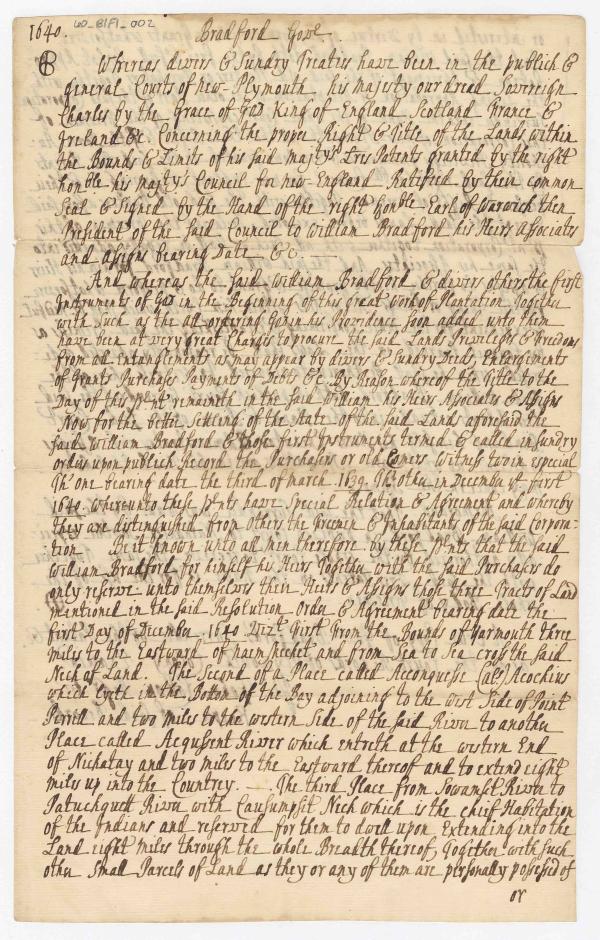 1640. 60_B1F1_002 Bradford Gove.
Whereas divers & Sundry Treaties have been in the publick &
general Courts of new-Plymouth his majesty our dread Sovereign
Charles by the Grace of God King of England Scotland France &
Ireland &c. Concerning the proper Right & Title of the Lands within
the Bounds & Limits of his said majtys Lres Patents granted by the right
honble his majtys Council for new-England Ratified by their common
Seal & Signed by the Hand of the right honble Earl of Warwick then
President of the said Council to William Bradford his Heirs Associates
and assigns bearing Date &c.
And whereas the said William Bradford & divers others the first
Instruments of God in the Beginning of this great work of Plantation Together
with such as the all ordering God in his Providence soon added unto them
have been at very great Charges to procure the said Lands Priviledges & freedoms
from all Entanglements as may appear by divers & Sundry Deeds, Enlargements
of Grants Purchases Payments of Debts &c By Reason whereof the Title to the
Day of this psent remaineth in the said William his Heirs Associates & Assigns
Now for the better Settling of the State of the said Lands aforesaid the
said William Bradford & those first Instruments termed & called in sundry
orders upon publick Record the Purchasers or old Comers Witness two in especial
Th one bearing date the third of march 1639. Th other in December ye first
1640. whereunto these psents have special Relation & Agreement and whereby
they are distinguished from others the freemen & Inhabitants of the said Corpora-
tion Be it known unto all men therefore by these psents that the said
William Bradford for himself his Heirs Together with the said Purchasers do
only reserve unto themselves their Heirs & Assigns those three Tracts of Land
mentioned in the said Resolution Order & Agreement bearing date the
first Day of December 1640 vizt. First from the Bounds of Yarmouth three
miles to the Eastward of naemskechet and from Sea to Sea cross the said
Neck of Land. The Second of a Place called Acconquesse (als) Acochius
which lyeth in the Bottom of the Bay adjoining to the West Side of Point
Perrill and two miles to the western Side of the said River to another
Place called Acqussent River which entreth at the western End
of Nickatay and two miles to the Eastward thereof and to extend eight
miles up into the Countrey. The third Place from Sowamsit River to
Patuckquett River with Causumpsit Neck which is the chief Habitation
of the Indians and reserved for them to dwell upon Extending into the
Land eight miles through the whole Breadth thereof, Together with such
other Small Parcels of Land as they or any of them are personally possessed of
or